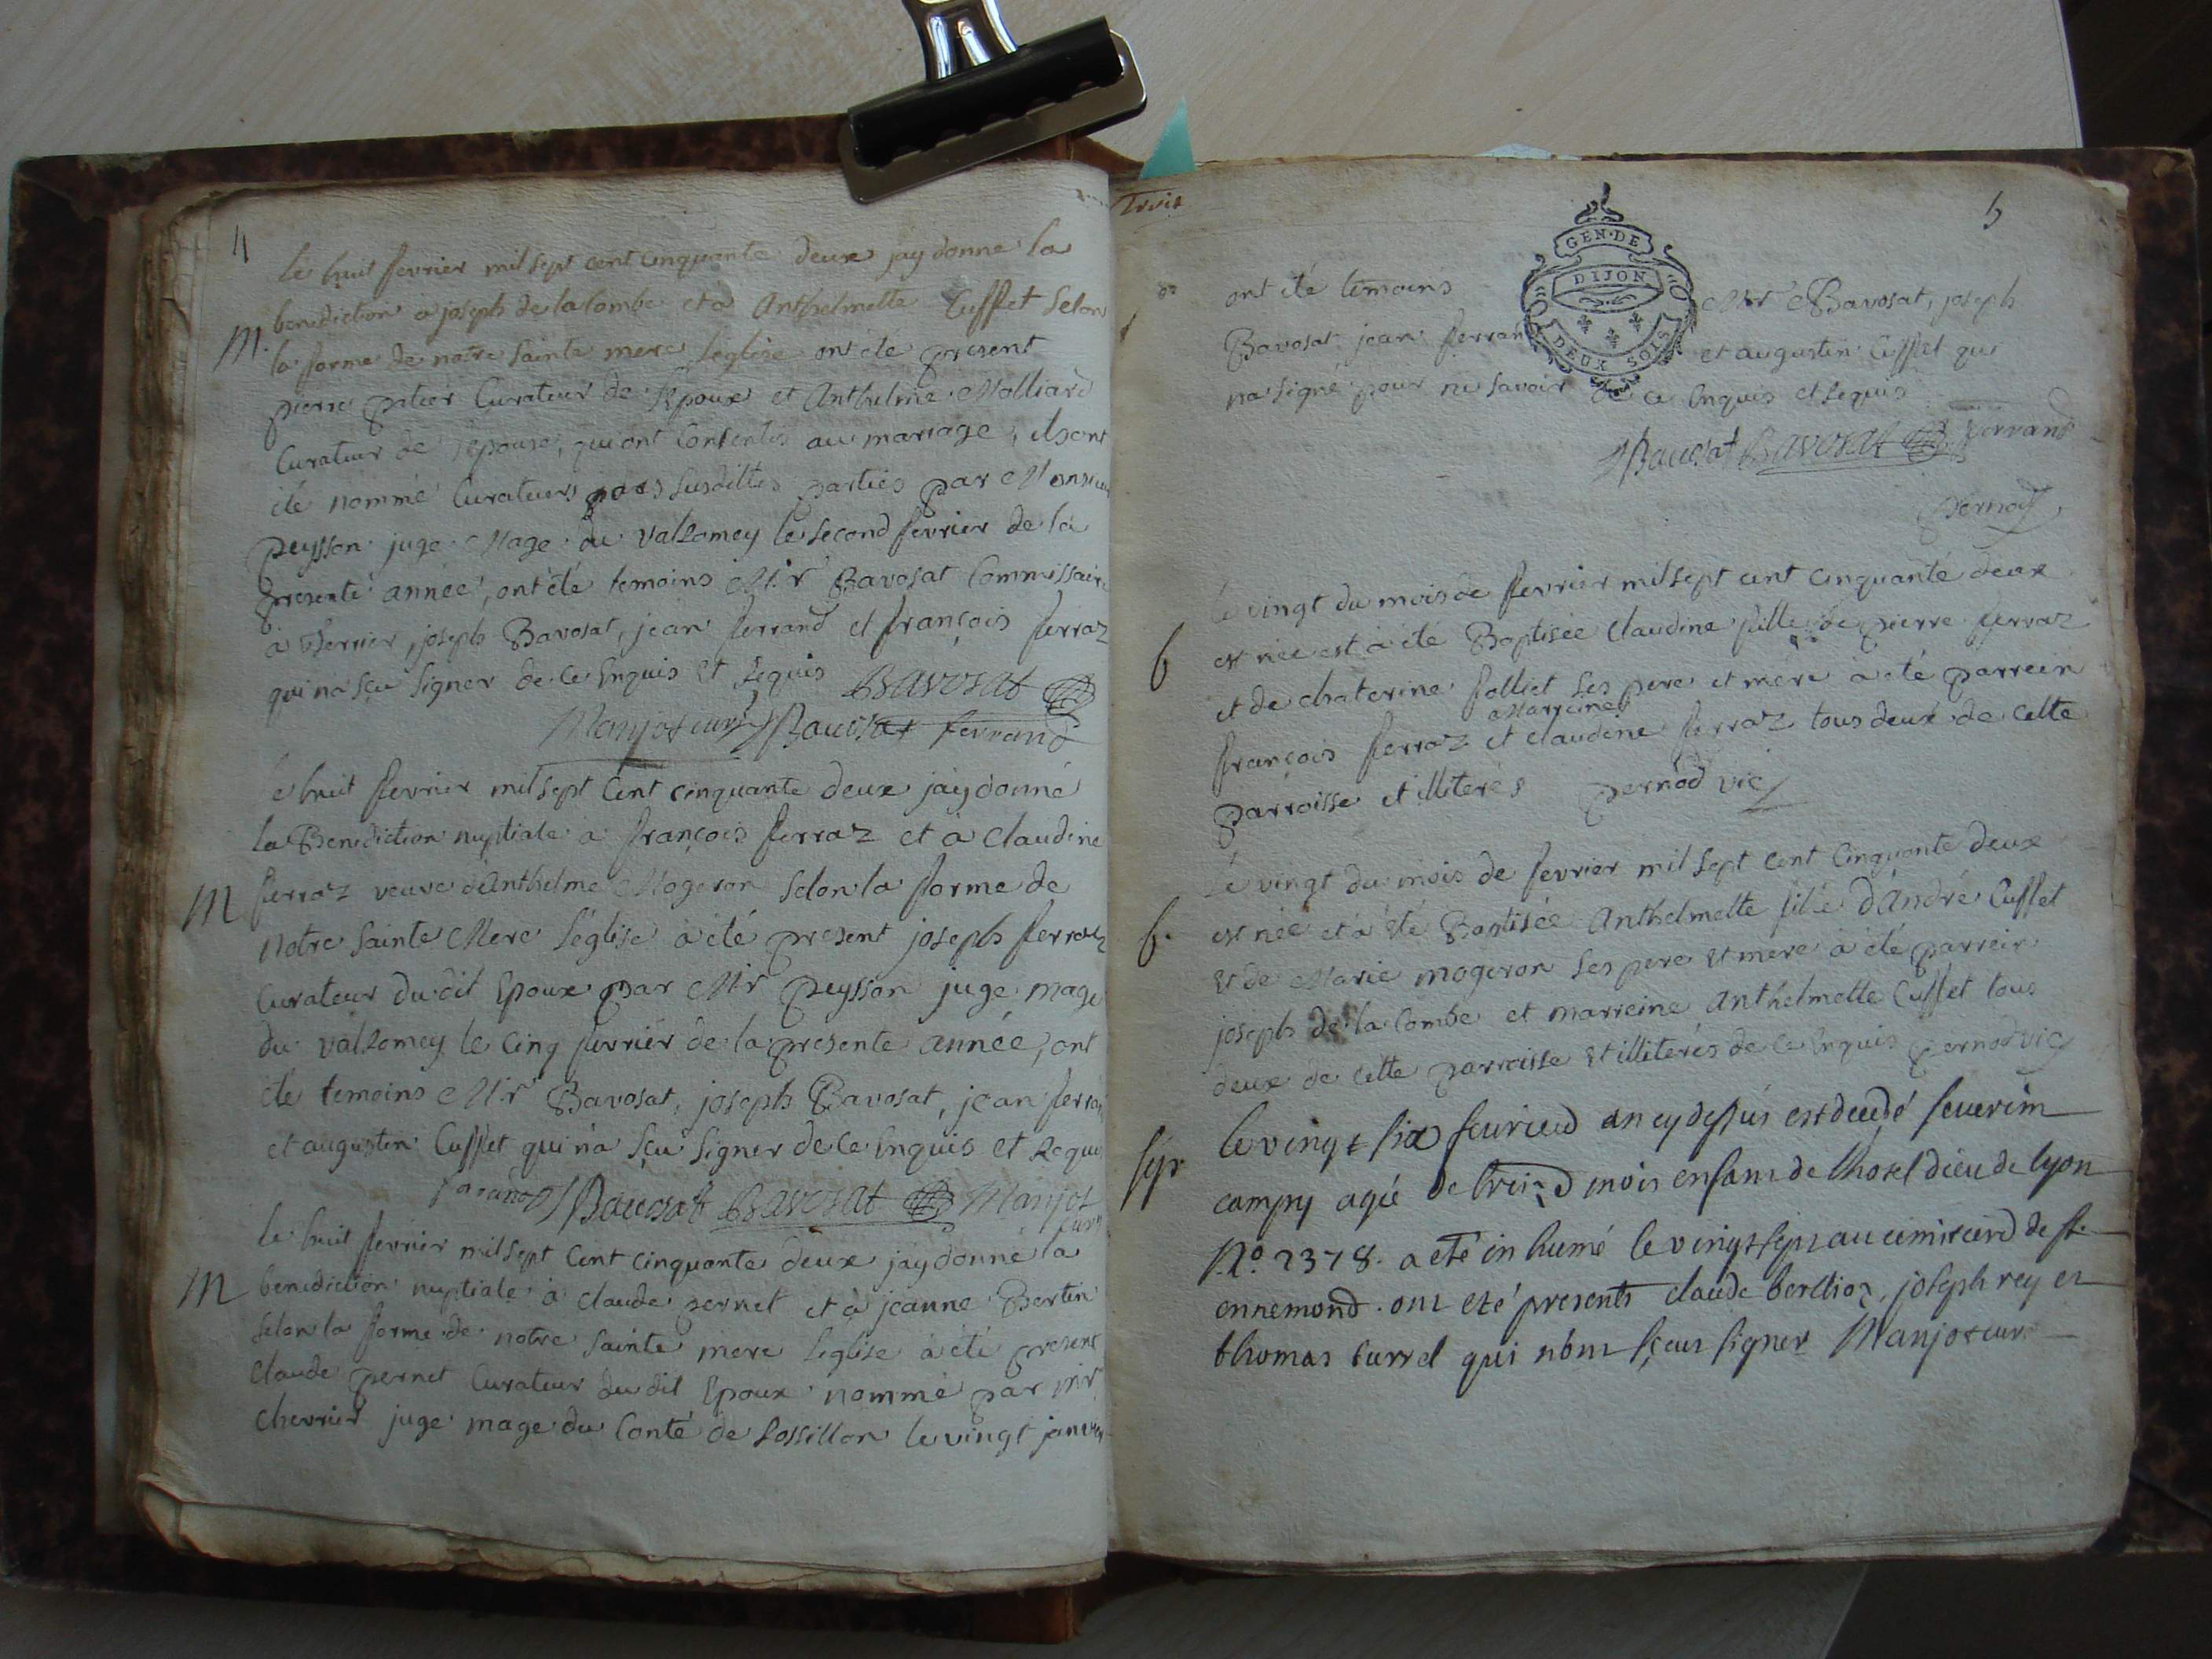 4
le huit fevrier mil sept cent cinquante deux jay donne la
M. benediction a joseph de la Combe et a Anthelmette Cuffet selon
la forme de notre Sainte mere leglise ont eté present
pierre Curateur de lepoux et Anthelme Molliard
Curateur de lepouse, qui ont consentis au mariage, ils ont
été nommé Curateurs susdittes parties par Monsieur
peysson juge Mage du Valromey le second fevrier de la
presente année, ont été temoins Mr Bavosat Commissaire
à joseph Bavosat, jean ferrand et françois ferraz
qui na sçu signer de ce Enquis et Requis Bavosat
Manjot curé JBavosat ferrand
le huit fevrier mil sept Cent cinquante deux jay donné
la Benediction nuptiale a françois ferraz et a Claudine
M ferraz veuve d'Anthelme Mogeron selon la forme de
Notre Sainte Mere l'église à été present joseph ferraz
Curateur du dit Epoux par Mr peysson juge mage
du Valromey le Cinq fevrier de la presente année, ont
été temoins Mr Bavosat, joseph Bavosat, jean ferran
et augustin Cuffet qui n'a sçu signer de ce Enquis et Requi
JBavosat Bavosat Manjot
curé
le huit fevrier mil sept Cent cinquante deux jay donné la
M benediction nuptiale à claude pernet et à jeanne Bertin
selon la forme de notre sainte mere l'eglise à été present
Claude pernet Curateur du dit Epoux nommé par mr
Chevrier juge mage du Conté de Lossillon le vingt janvier
Trois
5
GEN·DE
DIJON
DEUX SOLS
ont été temoins Mr Bavosat, joseph
Bavosat jean ferran et augustin Cuffet qui
na signé pour ne savoir de ce Enquis et Requis
JBavosat Bavosat ferrand
pernod
le vingt du mois de fevrier mil sept cent cinquante deux
b est née est à été Baptisée Claudine fille de pierre ferraz
et de chaterine folliet ses pere et mere à été parrein
Marreine
françois ferraz et claudine ferraz tous deux de cette
parroisse et illiterés pernod vic
Le vingt du mois de fevrier mil sept cent Cinquante deux
b. est née et à été Baptisée Anthelmette fille d'André Cuffet
Et de Marie mogeron ses pere Et mere à été parrein
joseph de la Combe et marreine Anthelmette Cuffet tous
deux de cette parroisse Et illiterés de ce Enquis pernod vic
le vingt six feurier an cy dessus est decedé seuerin
Sep. campy agée de mois enfant de lhotel dieu de lyon
No. 2378. a eté inhumé le vingt sept au cimitierd de st
ennemond. ont eté presents claude berlioz, joseph rey et
thomas turrel qui nont sçeu signer Manjot cur.